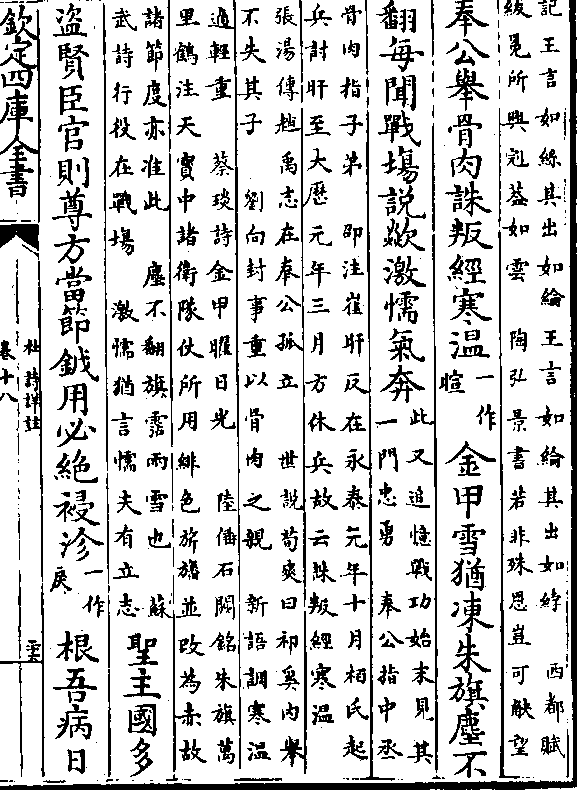 記王言如絲其出如綸王言如綸其出如綍　西都賦
紱冕所興冠葢如雲　陶弘景書若非殊恩豈可觖望
奉公舉骨肉誅叛經寒温一作暄　金甲雪猶凍朱旗塵不
翻每聞戰場說歘激懦氣奔此又追憶戰功始末見其
一門忠勇　奉公指中丞
骨肉指子弟　卽注崔旰反在永泰元年十月栢氏起
兵討旰至大厯元年三月方休兵故云誅叛經寒温
張湯傳趙禹志在奉公孤立　世說荀爽曰祁奚内舉
不失其子　劉向封事重以骨肉之親　新語調寒温
適輕重　蔡琰詩金甲曜日光　陸倕石闕銘朱旗萬
里　鶴注天寶中諸衛隊仗所用緋色旂旛並改為赤故
諸節度亦准此　塵不翻旗霑雨雪也　蘇
武詩行役在戰場　激懦猶言懦夫有立志　聖主國多
盜賢臣官則尊方當節鉞用必絶祲沴一作戾　根吾病日
欽定四庫全書
杜詩詳註
卷十八